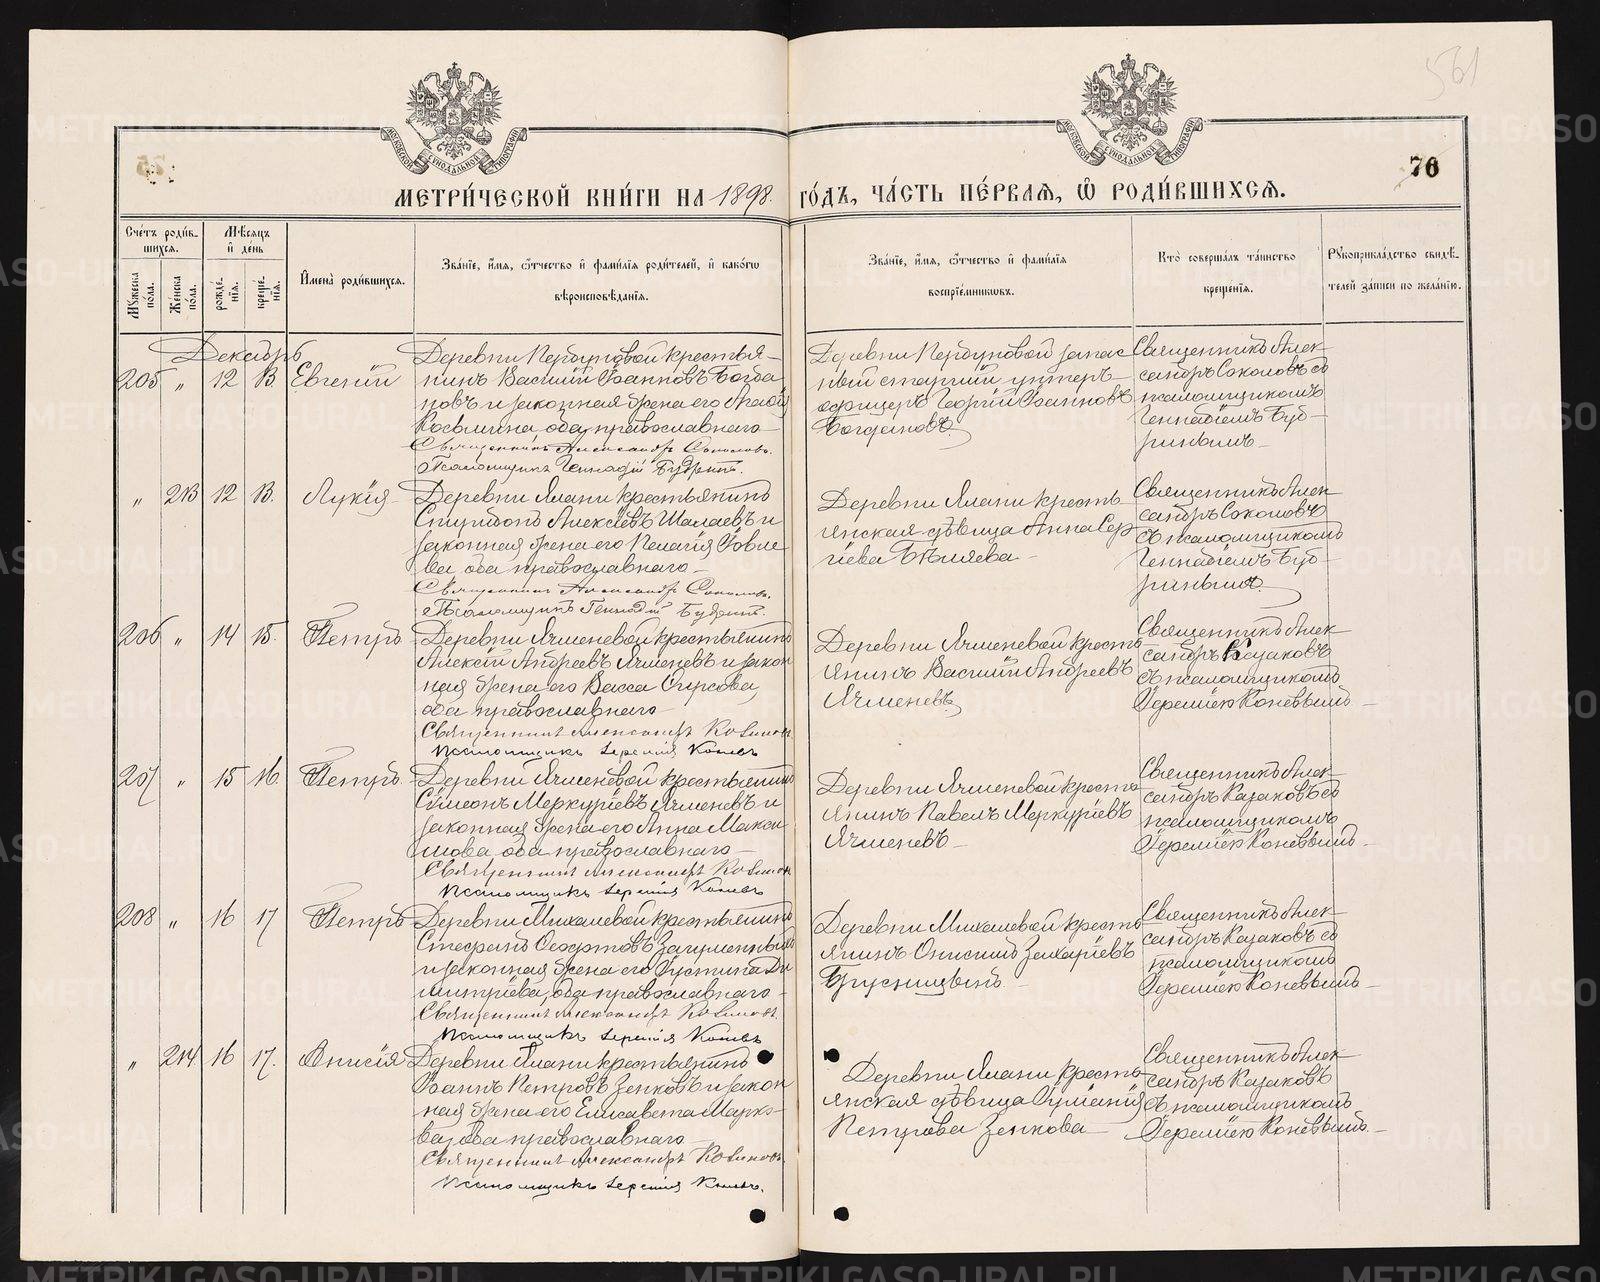 561
76
МОСКОВСКОЙ СѴНОДАЛЬНОЙ ТИПОГРАФІИ
МОСКОВСКОЙ СѴНОДАЛЬНОЙ ТИПОГРАФІИ
МЕТРИ́ЧЕСКОЙ КНИ́ГИ НА 1898. ГО́ДЪ, ЧА́СТЬ ПЕ́РВАѦ, Ѿ РОДИ́ВШИХСѦ.
Сче́тъ роди́в-
шихсѧ.
Мꙋ́жеска по́ла.
Же́нска по́ла.
Мѣ́сѧцъ
и҆ де́нь
рожде́-нїѧ.
креще́-нїѧ.
И҆мена̀ роди́вшихсѧ.
Зва́нїе, и҆́мѧ, ѻ҆́тчество и҆ фами́лїѧ роди́телей, и҆ како́гѡ
вѣроисповѣ́данїѧ.
Зва́нїе, и҆́мѧ, ѻ҆́тчество и҆ фами́лїѧ
воспрїе́мникѡвъ.
Кто̀ соверша́лъ та́инство
креще́нїѧ.
Рꙋкоприкла́дство свидѣ́-
телей за́писи по жела́нїю.
Декабрь
205 „ 12 13. Евгеній
Деревни Пербуновой крестья-
нинъ Василій Іоанновъ Богда
новъ и законная жена его
Косьмина оба православнаго
Священникъ Александръ Соколовъ.
Псаломщикъ Геннадій Будринъ.
Деревни Пербуновой запас
ный старшій унтеръ-
офицеръ Георгій Іоанновъ
Богдановъ
Священникъ Алек
сандръ Соколовъ съ
псаломщикомъ
Геннадіемъ Буд-
ринымъ
„ 213 12 13. Лукія
Деревни Ялани крестьянинъ
Спиридонъ Алексіевъ Шалаевъ и
законная жена его Пелагія Іовле
ва оба православнаго
Священникъ Александръ Соколовъ.
Псаломщикъ Геннадій Будринъ.
Деревни Ялани кресть
янская дѣвица Анна Сер
гіева Бѣляева
Священникъ Алек
сандръ Соколовъ
съ псаломщикомъ
Геннадіемъ Буд-
ринымъ
206 „ 14 15. Петръ
Деревни Ячменевой крестьянинъ
Алексій Андреевъ Ячменевъ и закон
ная жена его Васса Фирсова
оба православнаго
Священникъ Александръ Козаковъ
Псаломщикъ Іеремія Коневъ
Деревни Ячменевой кресть
янинъ Василій Андреевъ
Ячменевъ
Священникъ Алек
сандръ Казаковъ
съ псаломщикомъ
Іереміею Коневымъ
207 „ 15 16. Петръ
Деревни Ячменевой крестьянинъ
Сѵмеонъ Меркуріевъ Ячменевъ и
законная жена его Анна Макси
мова оба православнаго
Священникъ Александръ Козаковъ
Псаломщикъ Іеремія Коневъ
Деревни Ячменевой кресть
янинъ Павелъ Меркуріевъ
Ячменевъ
Священникъ Алек
сандръ Казаковъ съ
псаломщикомъ
Іереміею Коневымъ
208 „ 16 17 Петръ
Деревни Михалевой крестьянинъ
Стефанъ Загуменныхъ
и законная жена его Іустина Ди
митріева, оба православнаго
Священникъ Александръ Козаковъ.
Псаломщикъ Іеремія Коневъ
Деревни Михалевой кресть
янинъ Онисимъ Захаріевъ
Брусницынъ
Священникъ Алек
сандръ Казаковъ съ
псаломщикомъ
Іереміею Коневымъ
„ 214 16 17. Анисія
Деревни Ялани крестьянинъ
Іоаннъ Петровъ Зенковъ и закон
ная жена его Елисавета Марко-
ва, оба православнаго
Священникъ Александръ Козаковъ
Псаломщикъ Іеремія Коневъ.
Деревни Ялани кресть
янская дѣвица
Петрова Зенкова
Священникъ Алек
сандръ Казаковъ
съ псаломщикомъ
Іереміею Коневымъ
METRIKI.GASO-URAL.RU